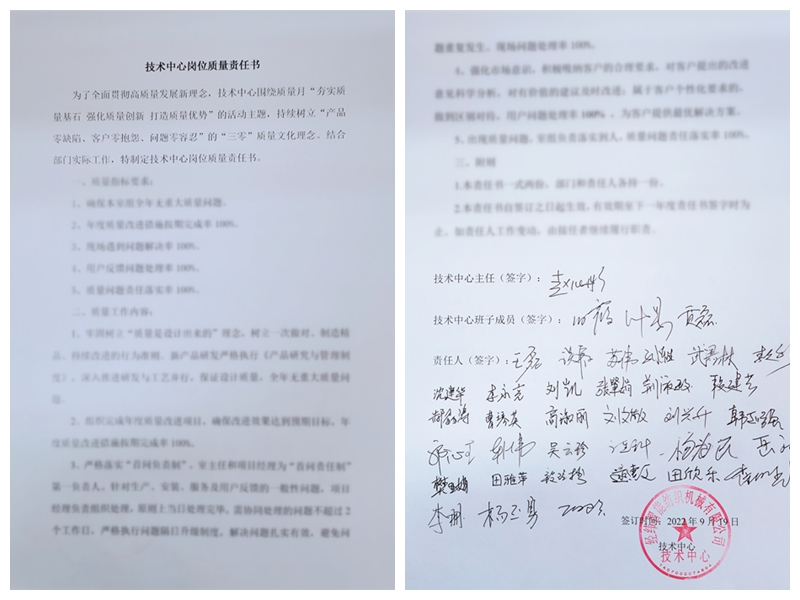 技术中心岗位质量责任书
为了全面贯彻高质量发展新理念，技术中心围绕质量月“夯实质
量基石 强化质量创新 打造质量优势”的活动主题，持续树立“产品
零缺陷、客户零抱怨、问题零容忍”的“三零”质量文化理念。结合
部门实际工作，特制定技术中心岗位质量责任书。
一、质量指标要求：
1、确保本室组全年无重大质量问题。
2、年度质量改进措施按期完成率 100%。
3、现场遇到问题解决率 100%。
4、用户反馈问题处理率 100%。
5、质量问题责任落实率 100%。
二、质量工作内容：
1、牢固树立“质量是设计出来的”理念，树立一次做对、制造精
品、持续改进的行为准则。新产品研发严格执行《产品研究与管理制
度》，深入推进研发与工艺并行，保证设计质量，全年无重大质量问
题。
2、组织完成年度质量改进项目，确保改进效果达到预期目标，年
度质量改进措施按期完成率 100%。
3、严格落实“首问负责制”，室主任和项目经理为“首问责任制”
第一负责人。针对生产、安装、服务及用户反馈的一般性问题，项目
经理负责组织处理，原则上当日处理完毕，需协同处理的问题不超过 2
个工作日。严格执行问题隔日升级制度，解决问题扎实有效，避免问
题重复发生。现场问题处理率 100%。
4、强化市场意识，积极吸纳客户的合理要求，对客户提出的改进
意见科学分析，对有价值的建议及时改进；属于客户个性化要求的，
做到区别对待。用户问题处理率 100%，为客户提供最优解决方案。
5、出现质量问题，室组负责落实到人，质量问题责任落实率 100%。
三、附则
1.本责任书一式两份，部门和责任人各持一份。
2.本责任书自签订之日起生效，有效期至下一年度责任书签字时为
止。如责任人工作变动，由接任者继续履行职责。
技术中心主任（签字）：
技术中心班子成员（签字）：
责任人（签字）：王磊 苏伟
沈建华 李永亮 刘凯
曹琴英 高淑丽 刘文敏 刘兴升
吴云珍
田雅苹 田欣乐
李珊
签订时间：2022 年 9 月 19 日
技术中心
纺织机械有限公司
技术中心